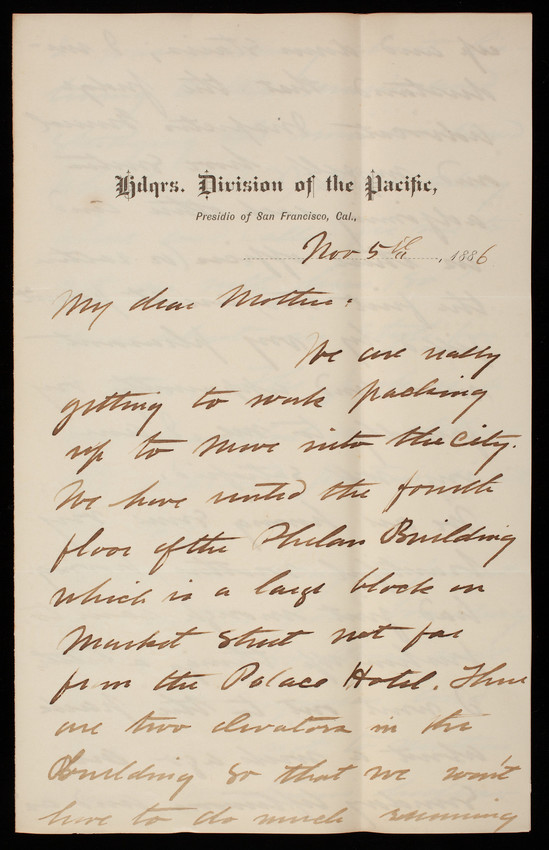 Hdqrs. Division of the Pacific,
Presidio of San Francisco, Cal.,
Nov 5th, 1886
My dear Mother:
We are really
getting to work packing
up to move into the city.
We have rented the fourth
floor of the Phelan Building
which is a large block on
Market Street not far
from the Palace Hotel. There
are two elevators in the
Building so that we won't
have to do much running